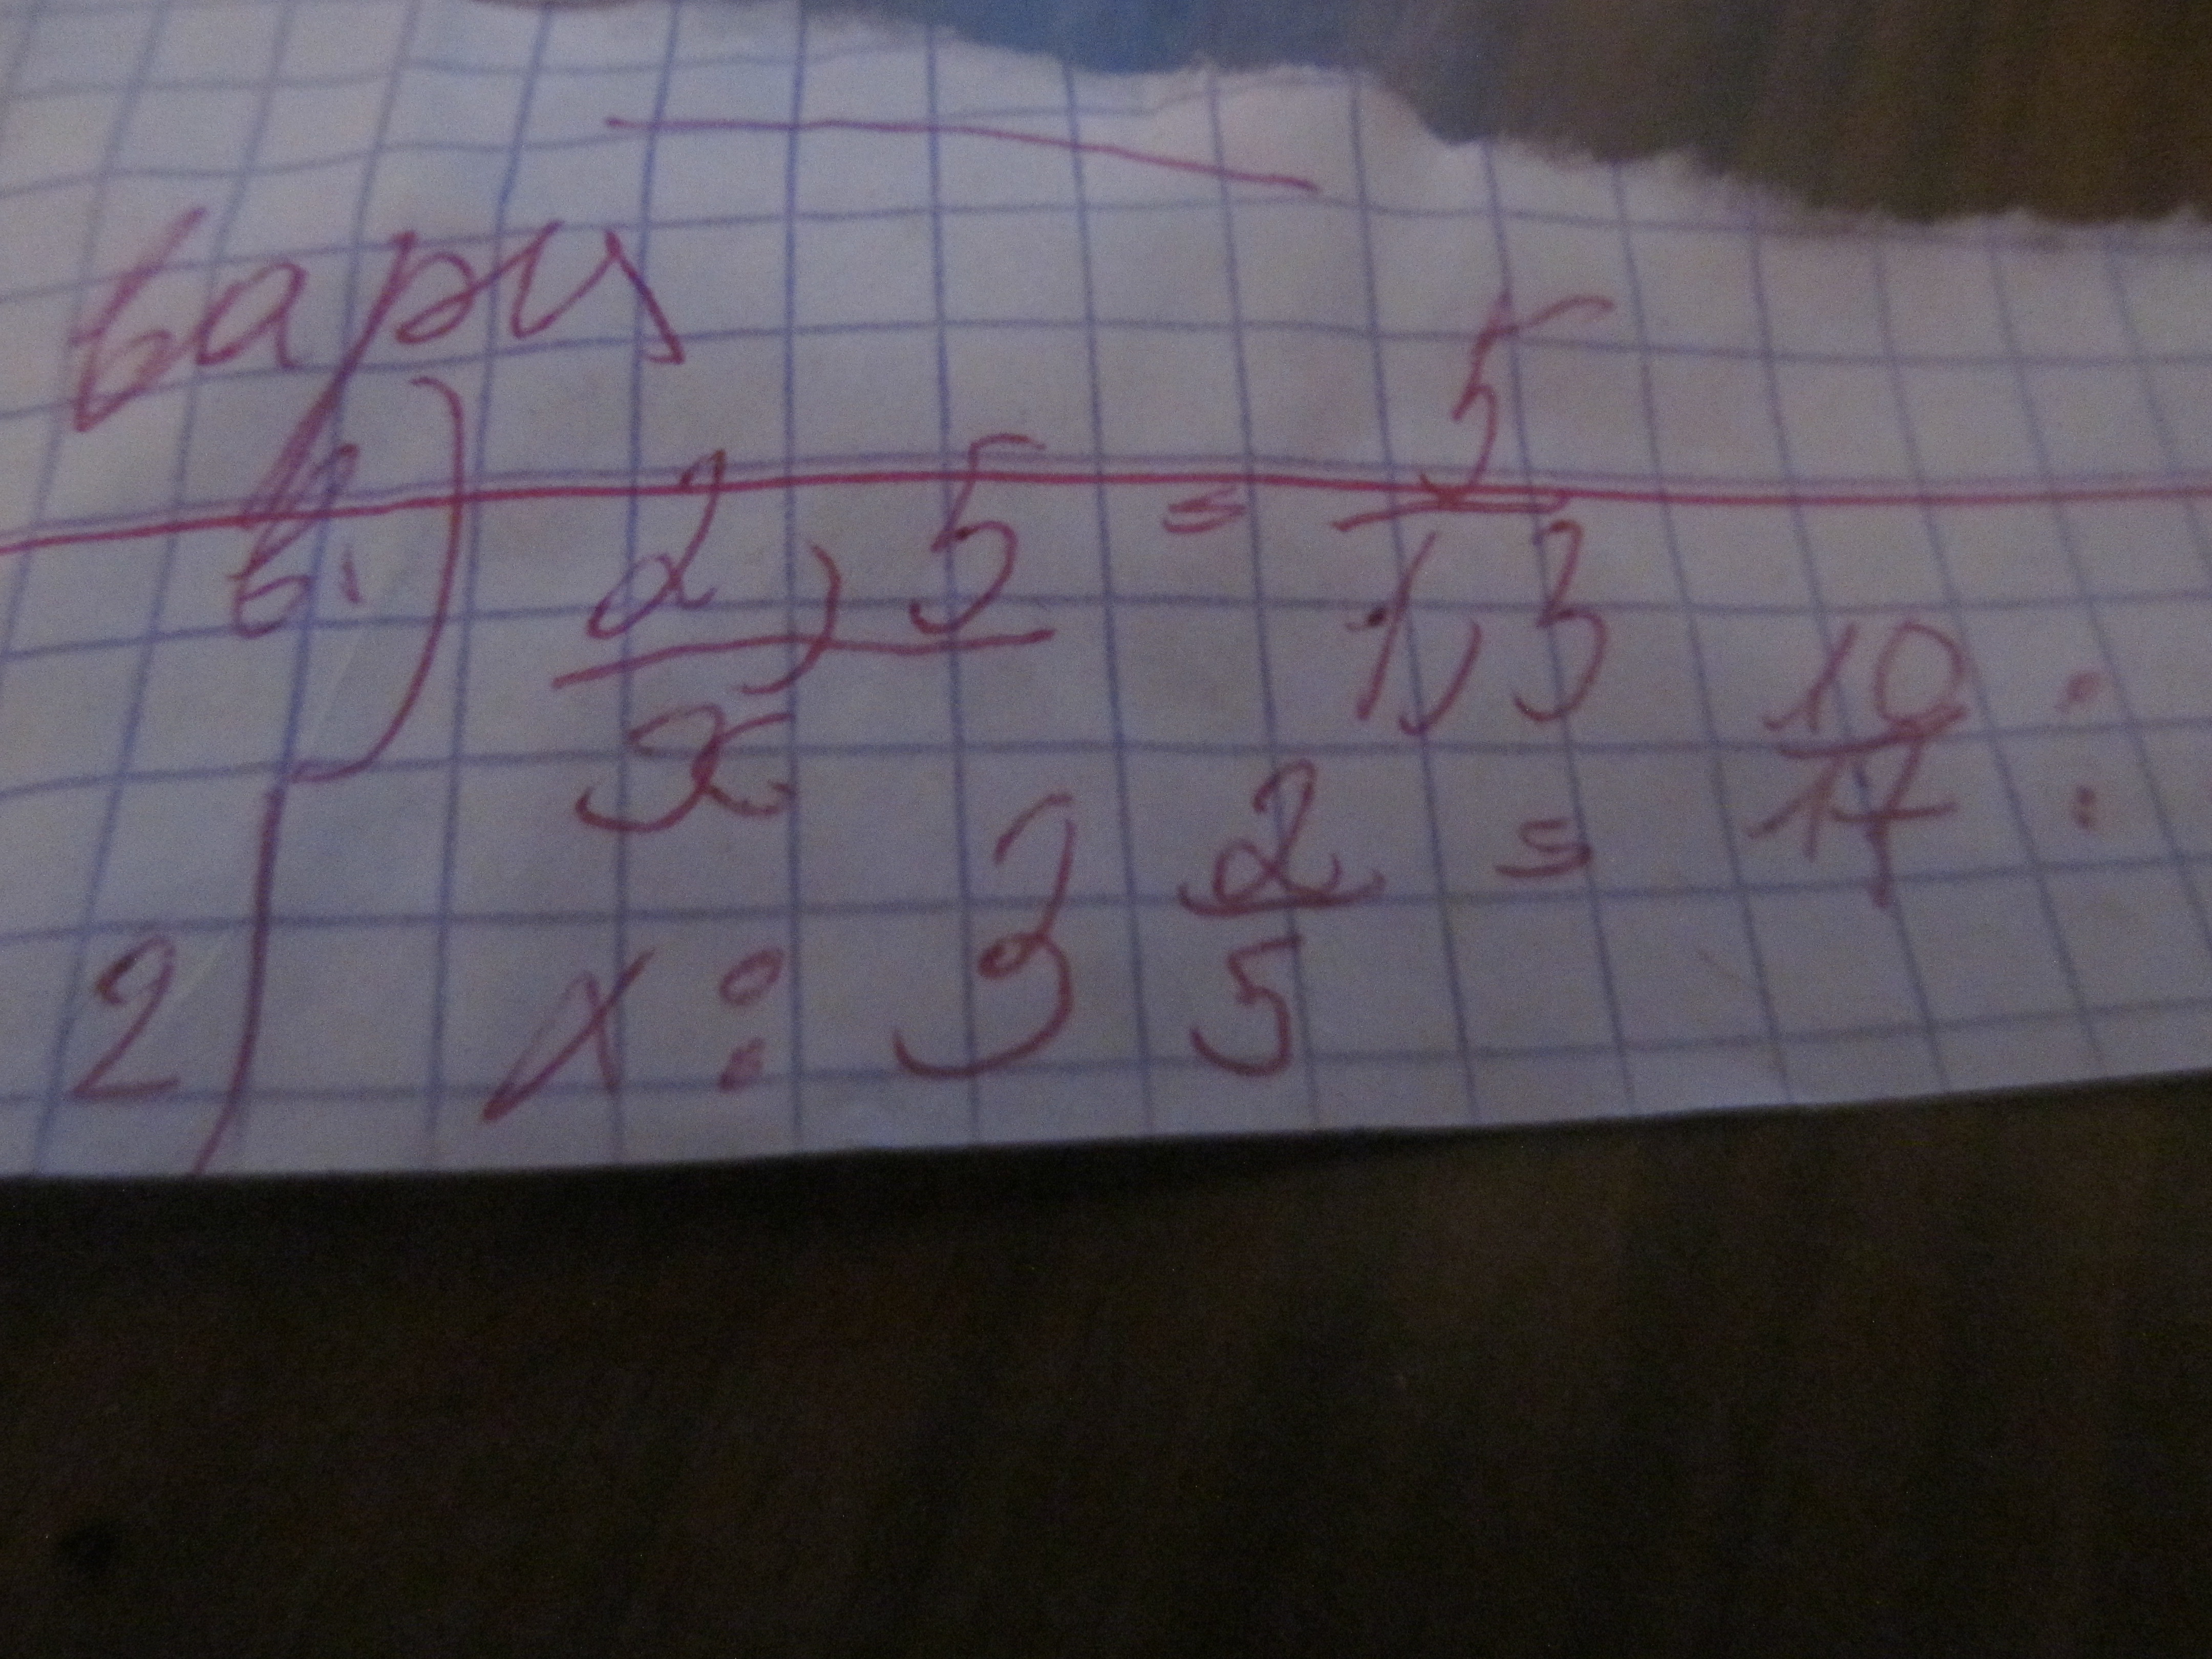 вари
в) 2,5/x = 5/1,3
2) x : 3 2/5 = 10/17 :